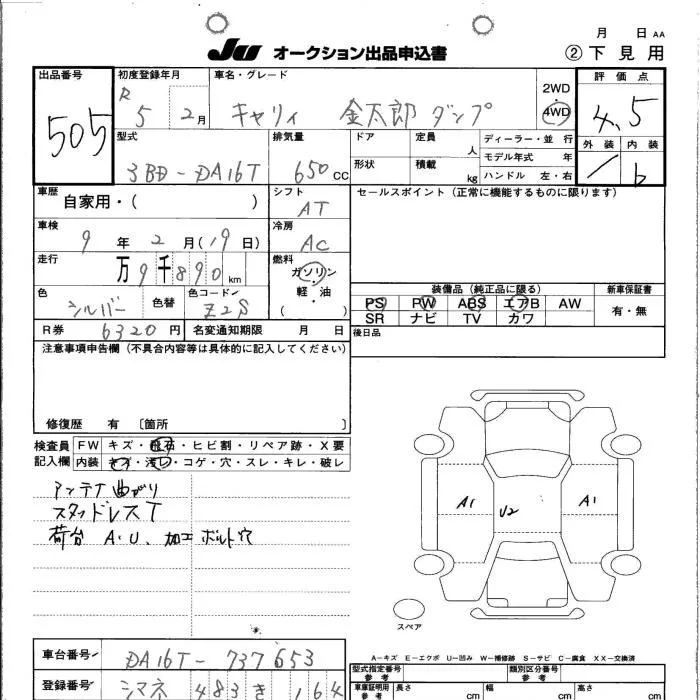 月 日 AA
JU オークション出品申込書 ② 下見用
出品番号 初度登録年月 車名・グレード 評価点
505 R 5 2月 キャリィ 金太郎 ダンプ 2WD 4WD 4.5
型式 排気量 ドア 定員 人 ディーラー・並 行 外装 内装
3BD-DA16T 650 CC 形状 積載 kg モデル年式 年 ハンドル 左・右 / b
車歴 自家用・( ) シフト AT セールスポイント (正常に機能するものに限ります)
車検 9年 2月(19日) 冷房 AC
走行 万 9千890 km 燃料 ガソリン 軽油 ( )
色 シルバー 色替 色コード Z2S
装備品 (純正品に限る) 新車保証書
PS PW ABS エアB AW 有・無
SR ナビ TV カワ
R券 6320円 名変通知期限 月 日 後日品
注意事項申告欄 (不具合内容等は具体的に記入してください)
修復歴 有 [箇所 ]
検査員 FW キズ・飛石・ヒビ割・リペア跡・X要
記入欄 内装 キズ・汚レ・コゲ・穴・スレ・キレ・破レ
アンテナ曲がり
スタッドレスT
荷台 A.U、加工ボルト穴
A1 U2 A1
スペア
A-キズ E-エクボ U-凹み W-補修跡 S-サビ C-腐食 XX-交換済
車台番号 DA16T-737653
型式指定番号 参考 類別区分番号 参考
登録番号 シマネ 483 き 164
車車証明用 参考 長さ cm 幅 cm 高さ cm